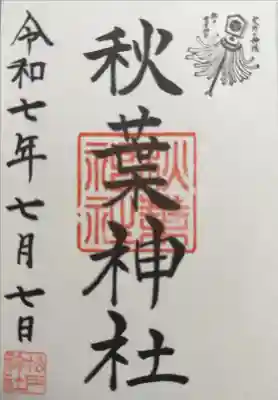 秋葉神社
令和七年七月七日
秋葉神社
松戸神社